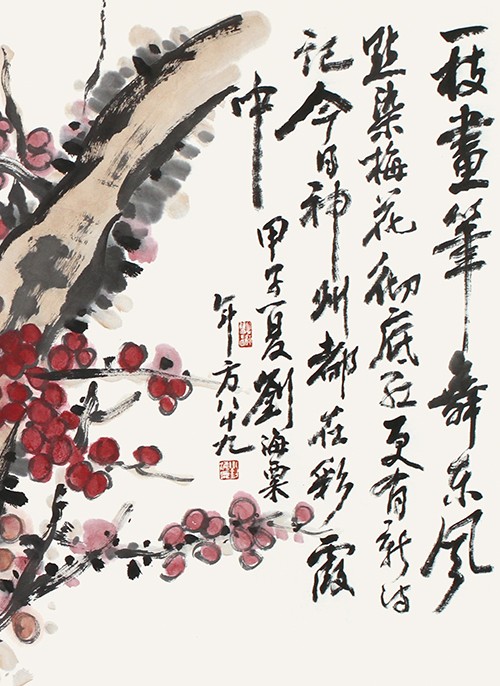 一枝畫筆舞东风
點染梅花彻底红更有新诗
记今日神州都在彩霞
中
甲子夏劉海粟
年方八十九